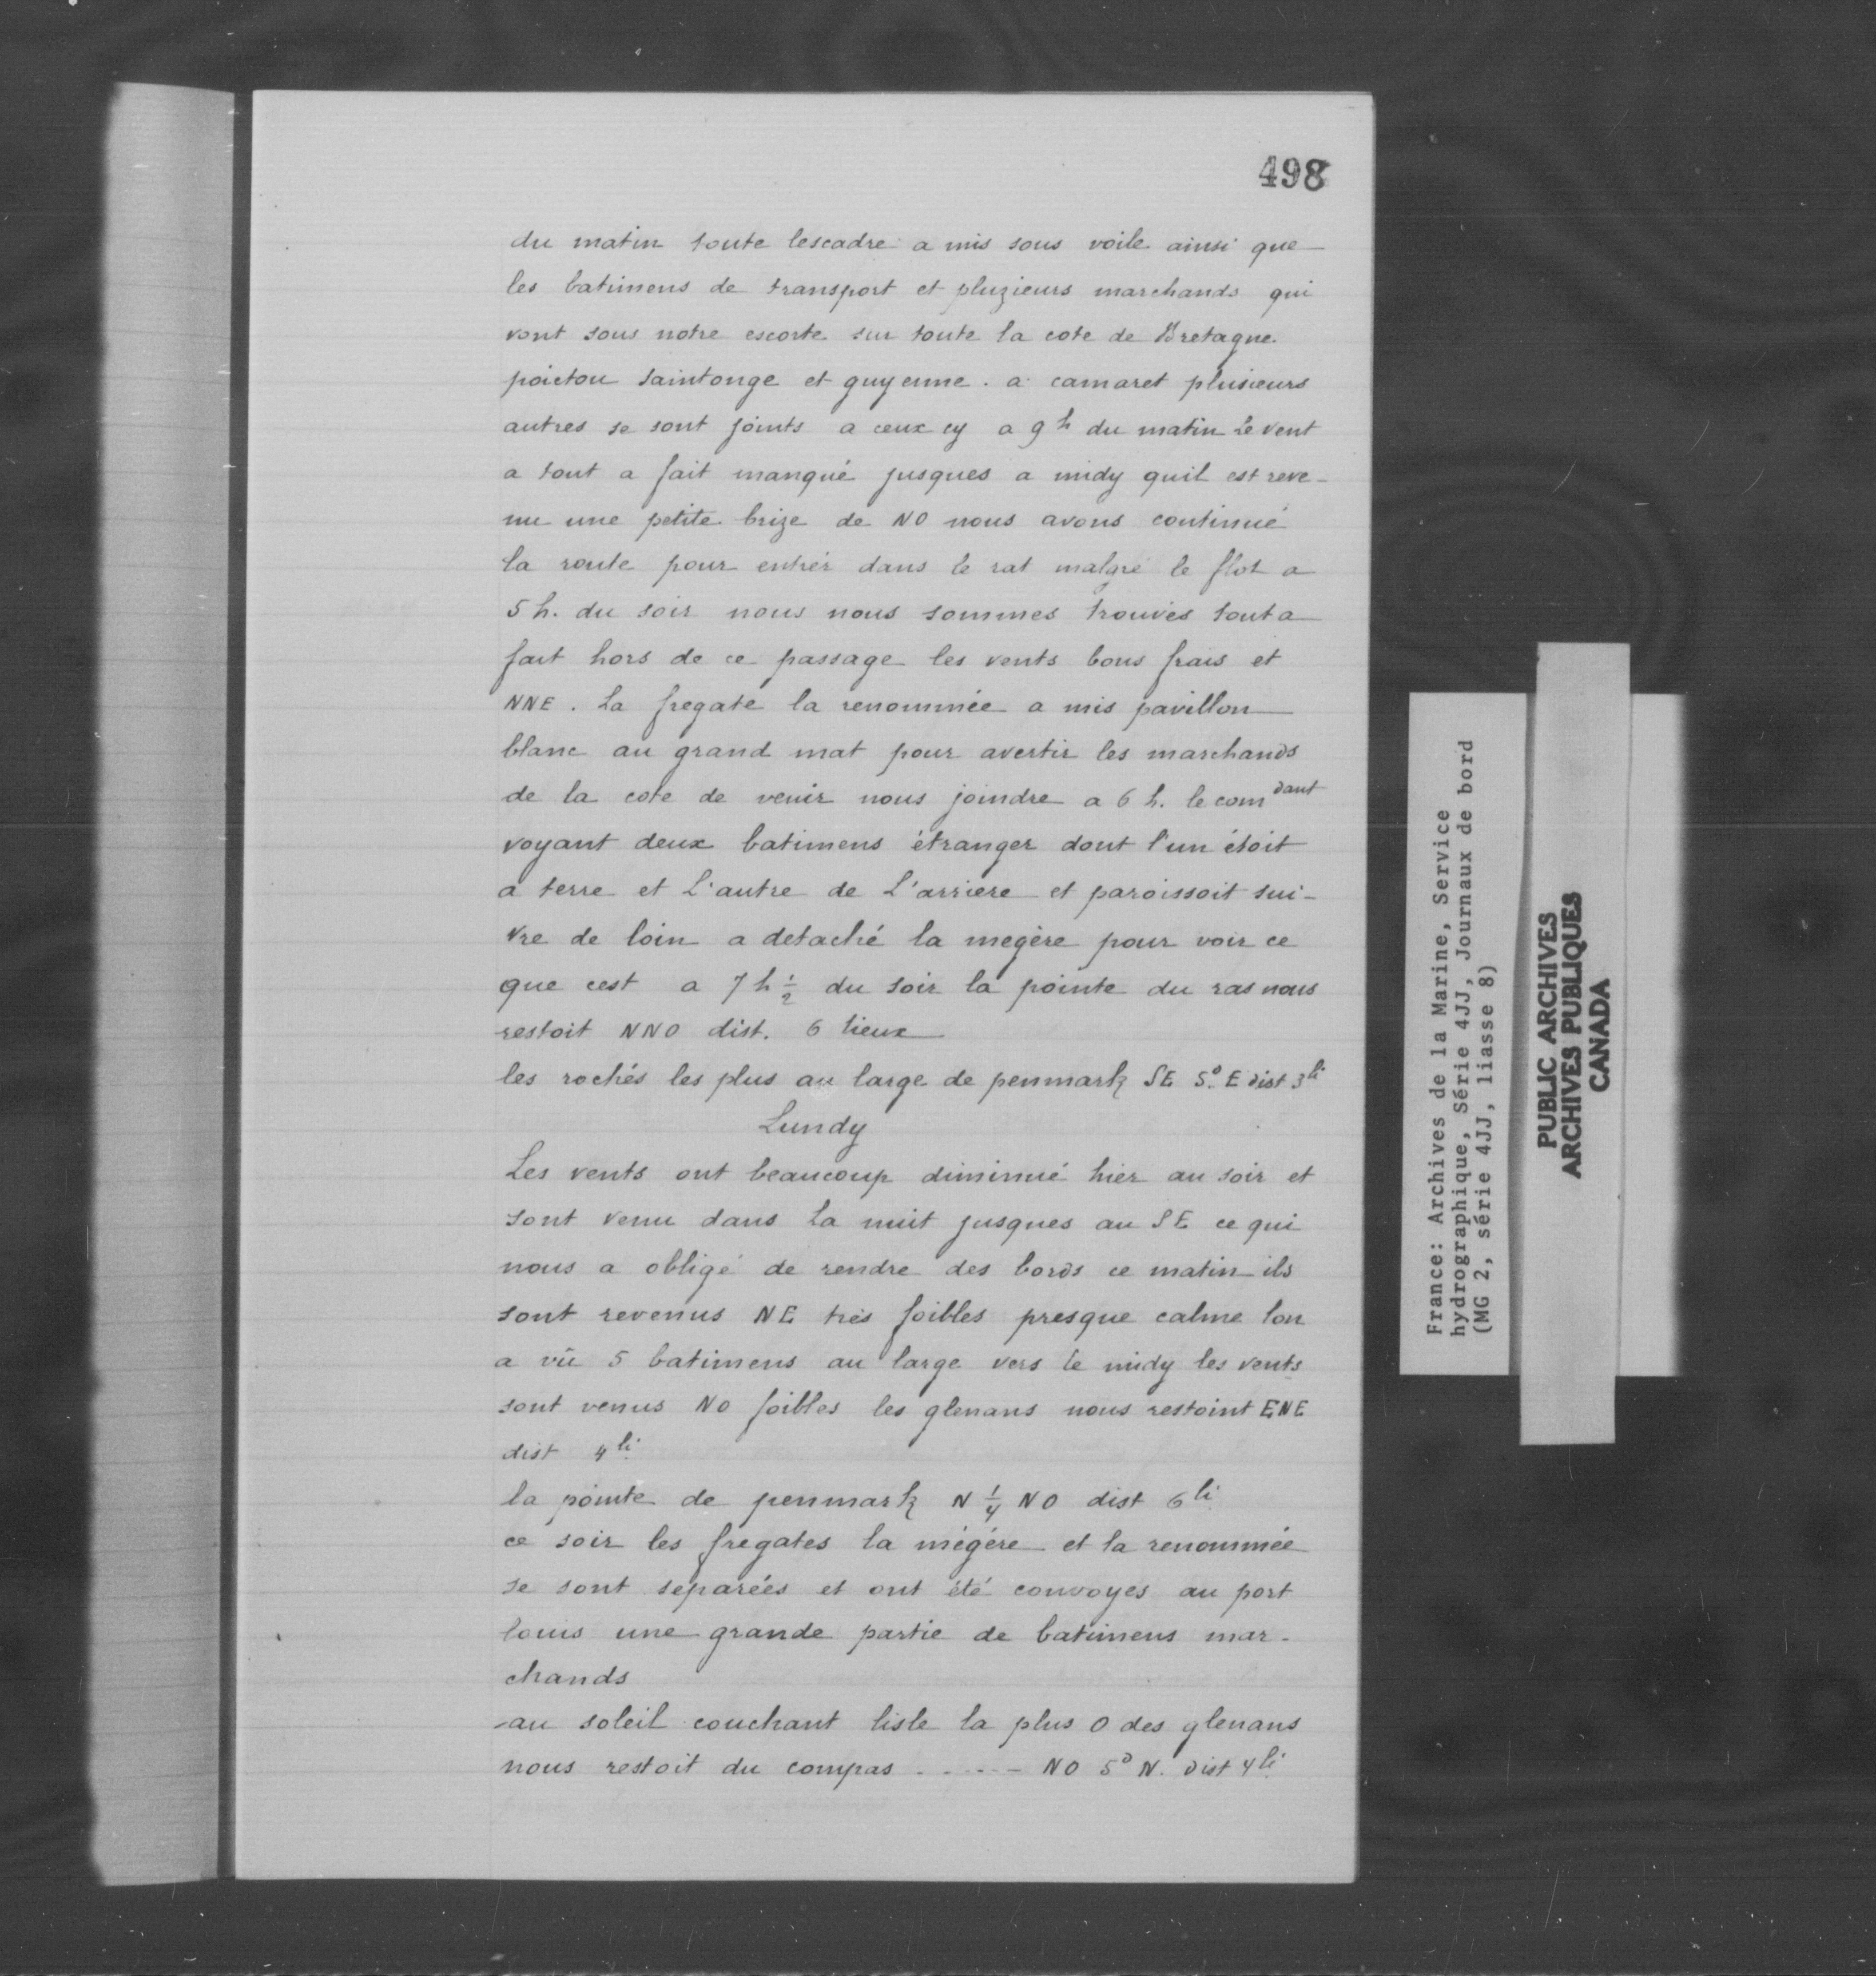 498
du matin toute lescadre a mis sous voile ainsi que
les batimens de transport et pluzieurs marchands qui
vont sous notre escorte sur toute la cote de Bretagne
poictou saintonge et guyenne. a camaret plusieurs
autres se sont joints a ceux cy a 9 h du matin Le vent
a tout a fait manqué jusques a midy quil est reve-
nu une petite brize de NO nous avons continué
la route pour entrér dans le rat malgré le flot a
5 h. du soir nous nous sommes trouvés tout a
fait hors de ce passage les vents bons frais et
NNE. La fregate la renommée a mis pavillon
blanc au grand mat pour avertir les marchands
de la cote de venir nous joindre a 6 h. le comdant
voyant deux batimens étranger dont l'un étoit
a terre et L'autre de L'arriere et paroissoit sui-
vre de loin a detaché la megère pour voir ce
que cest a 7 h 1/2 du soir la pointe du ras nous
restoit NNO dist. 6 lieux
les rochés les plus au large de penmark SE 5° E dist 3 li
Lundy
Les vents ont beaucoup diminué hier au soir et
sont venu dans La nuit jusques au SE ce qui
nous a obligé de rendre des bords ce matin ils
sont revenus NE trés foibles presque calme lon
a vû 5 batimens au large vers le midy les vents
sont venus NO foibles les glenans nous restoint ENE
dist 4 li
la pointe de penmark N 1/4 NO dist 6 li
ce soir les fregates la mégére et la renommée
se sont séparées et ont été convoyes au port
louis une grande partie de batimens mar-
chands
au soleil couchant lisle la plus O des glenans
nous restoit du compas ..... NO 5° N. dist 4 li
France: Archives de la Marine, Service
hydrographique, Série 4JJ, Journaux de bord
(MG 2, série 4JJ, liasse 8)
PUBLIC ARCHIVES
ARCHIVES PUBLIQUES
CANADA